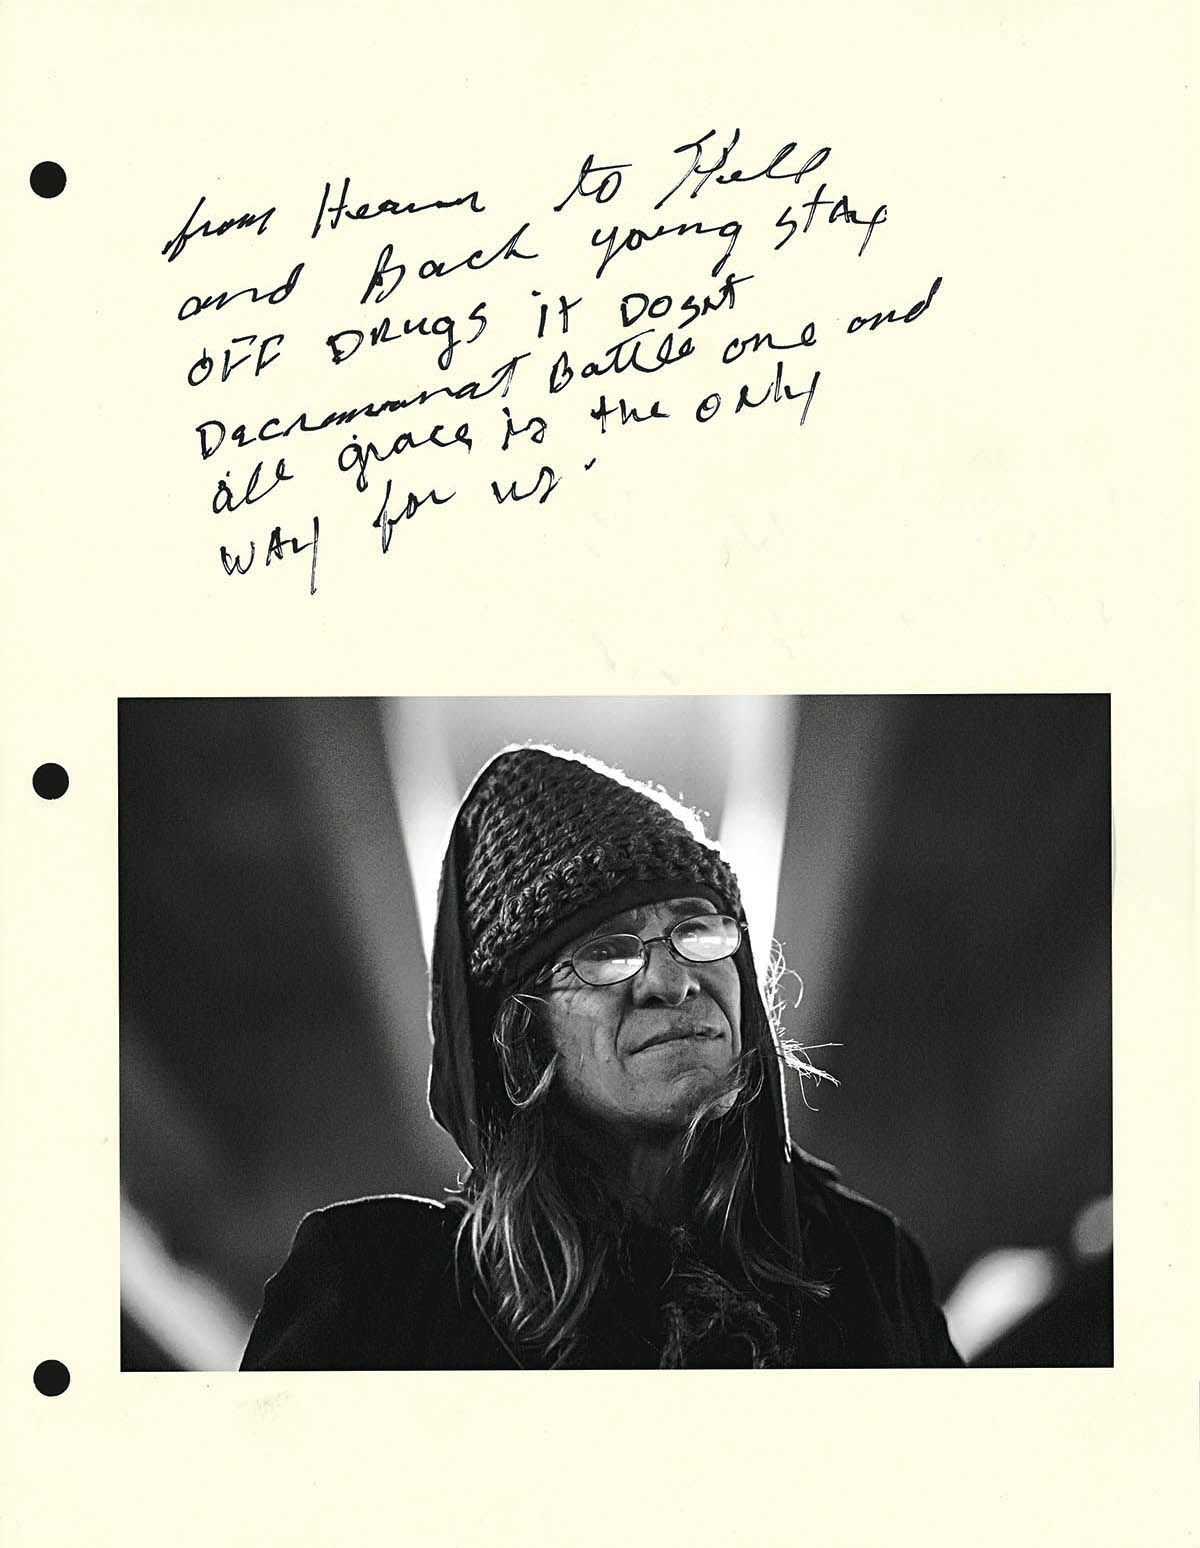 from Heaven to Hell
and Back young stay
OFF DRUgS it DOSnt
Decremanat Battle one and
all grace is the ONly
WAy for us.